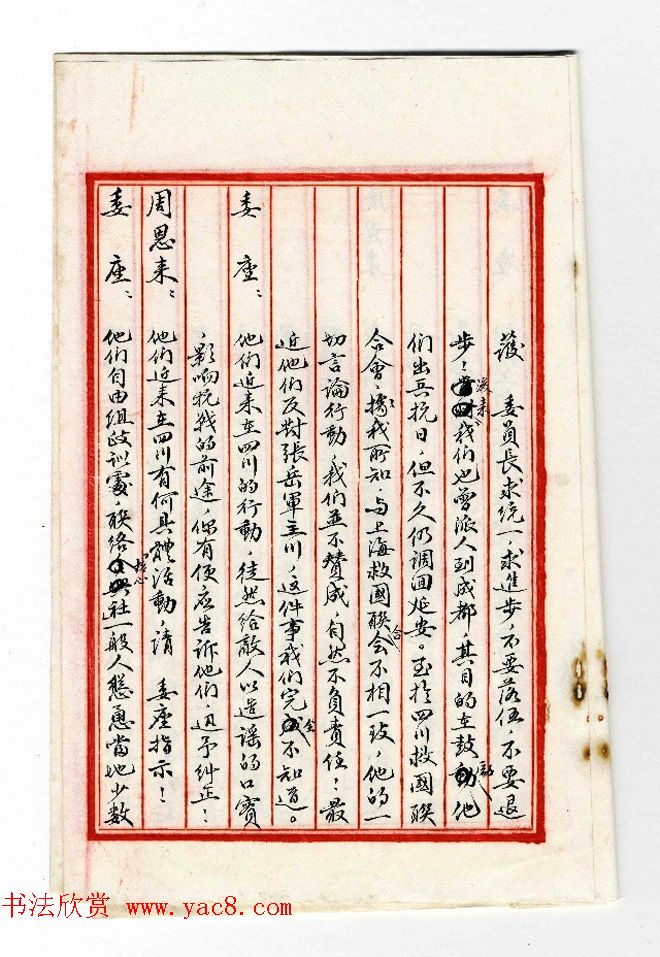 護　委員長求統一，求進步，不要落伍，不要退
步；後來我們也曾派人到成都，其目的在鼓勵他
們出兵抗日，但不久仍調回延安。至於四川救國聯
合會，據我所知，與上海救國聯合會不相一致，他的一
切言論行動，我們並不贊成，自然不負責任；最
近他們反對張岳軍主川，這件事我們完全不知道。
委　座：他們近來在四川的行動，徒然給敵人以造謠的口實
，影响抗戰的前途，你有便應告訴他們，迅予糾正！
周恩来：他們近来在四川有何具體活動，請　委座指示！
委　座：他們自由組歧訓處，聯絡核心社一般人慫恿當地少數
书法欣赏 www.yac8.com